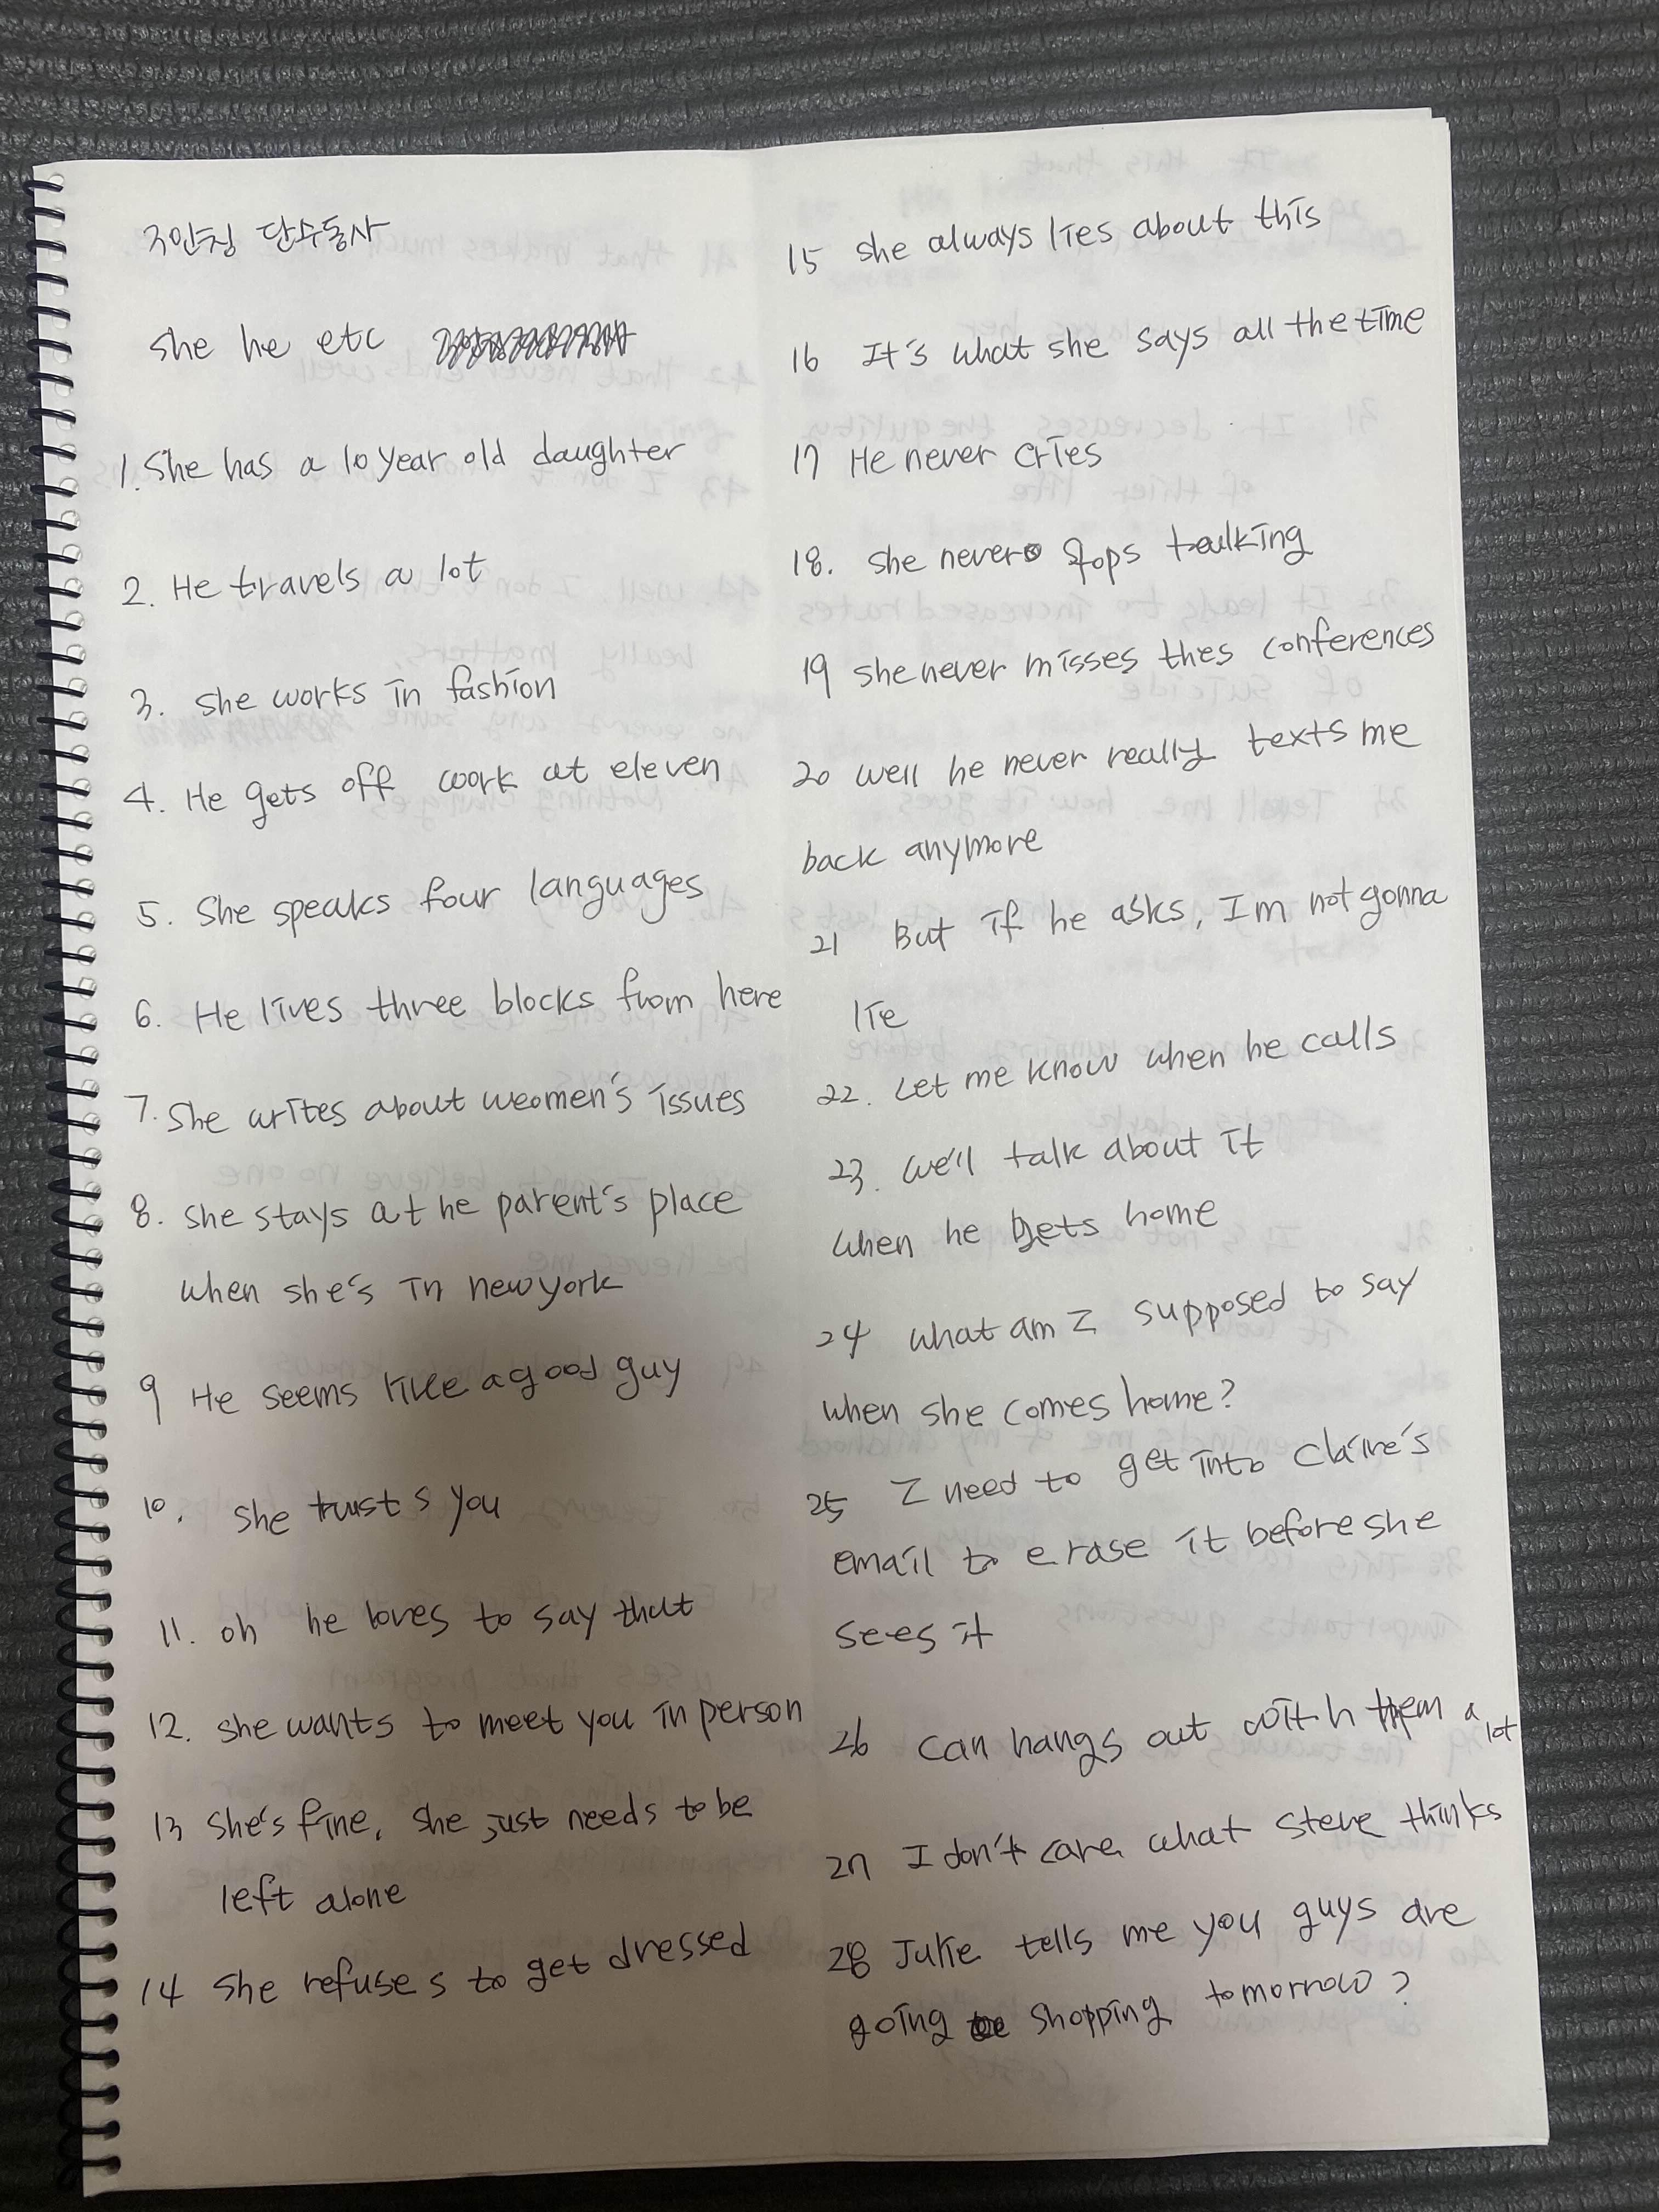 3인칭 단수동사
she he etc
1. She has a 10 year old daughter
2. He travels a lot
3. She works in fashion
4. He gets off work at eleven
5. She speaks four languages
6. He lives three blocks from here
7. She writes about weomen's issues
8. she stays at he parent's place
when she's in newyork
9 He seems like a good guy
10. she trusts you
11. oh he loves to say that
12. she wants to meet you in person
13 she's fine, she just needs to be
left alone
14 she refuses to get dressed
15 she always lies about this
16 It's what she says all the time
17 He never cries
18. she never stops talking
19 she never misses thes conferences
20 well he never really texts me
back anymore
21 But if he asks, I'm not gonna
lie
22. Let me know when he calls
23. we'll talk about it
when he gets home
24 what am I supposed to say
when she comes home?
25 I need to get into Claire's
email to erase it before she
sees it
26 can hangs out with them a lot
27 I don't care what steve thinks
28 Julie tells me you guys are
going shopping tomorrow?